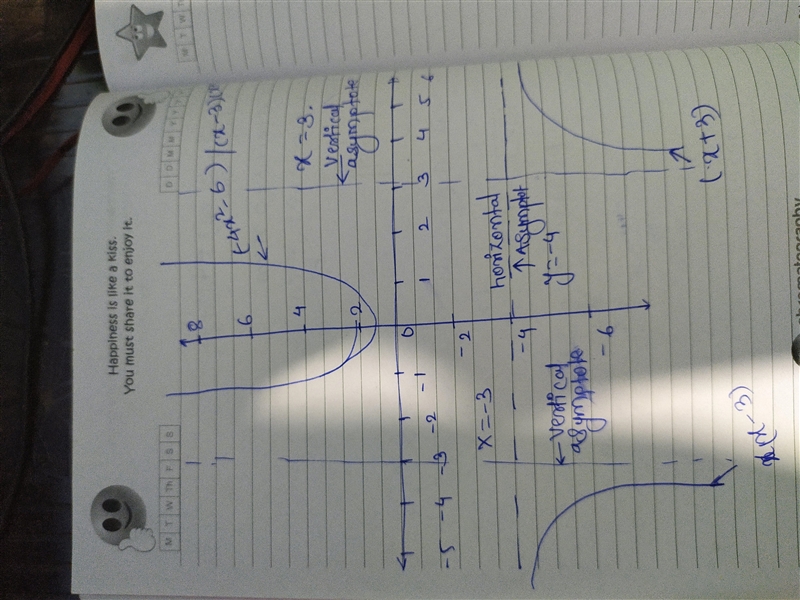 Happiness is like a kiss.
You must share it to enjoy it.
M T W Th F S S
(-4x²-6)/(x-3)(x
x=3.
←Vertical
asymptote
8
6
4
2
0
-2
-4
-6
-5 -4 -3 -2 -1
1 2 3 4 5 6
horizontal
↑Asymptot
y=-4
x=-3
←Vertical
asymptote
(x+3)
(x-3)